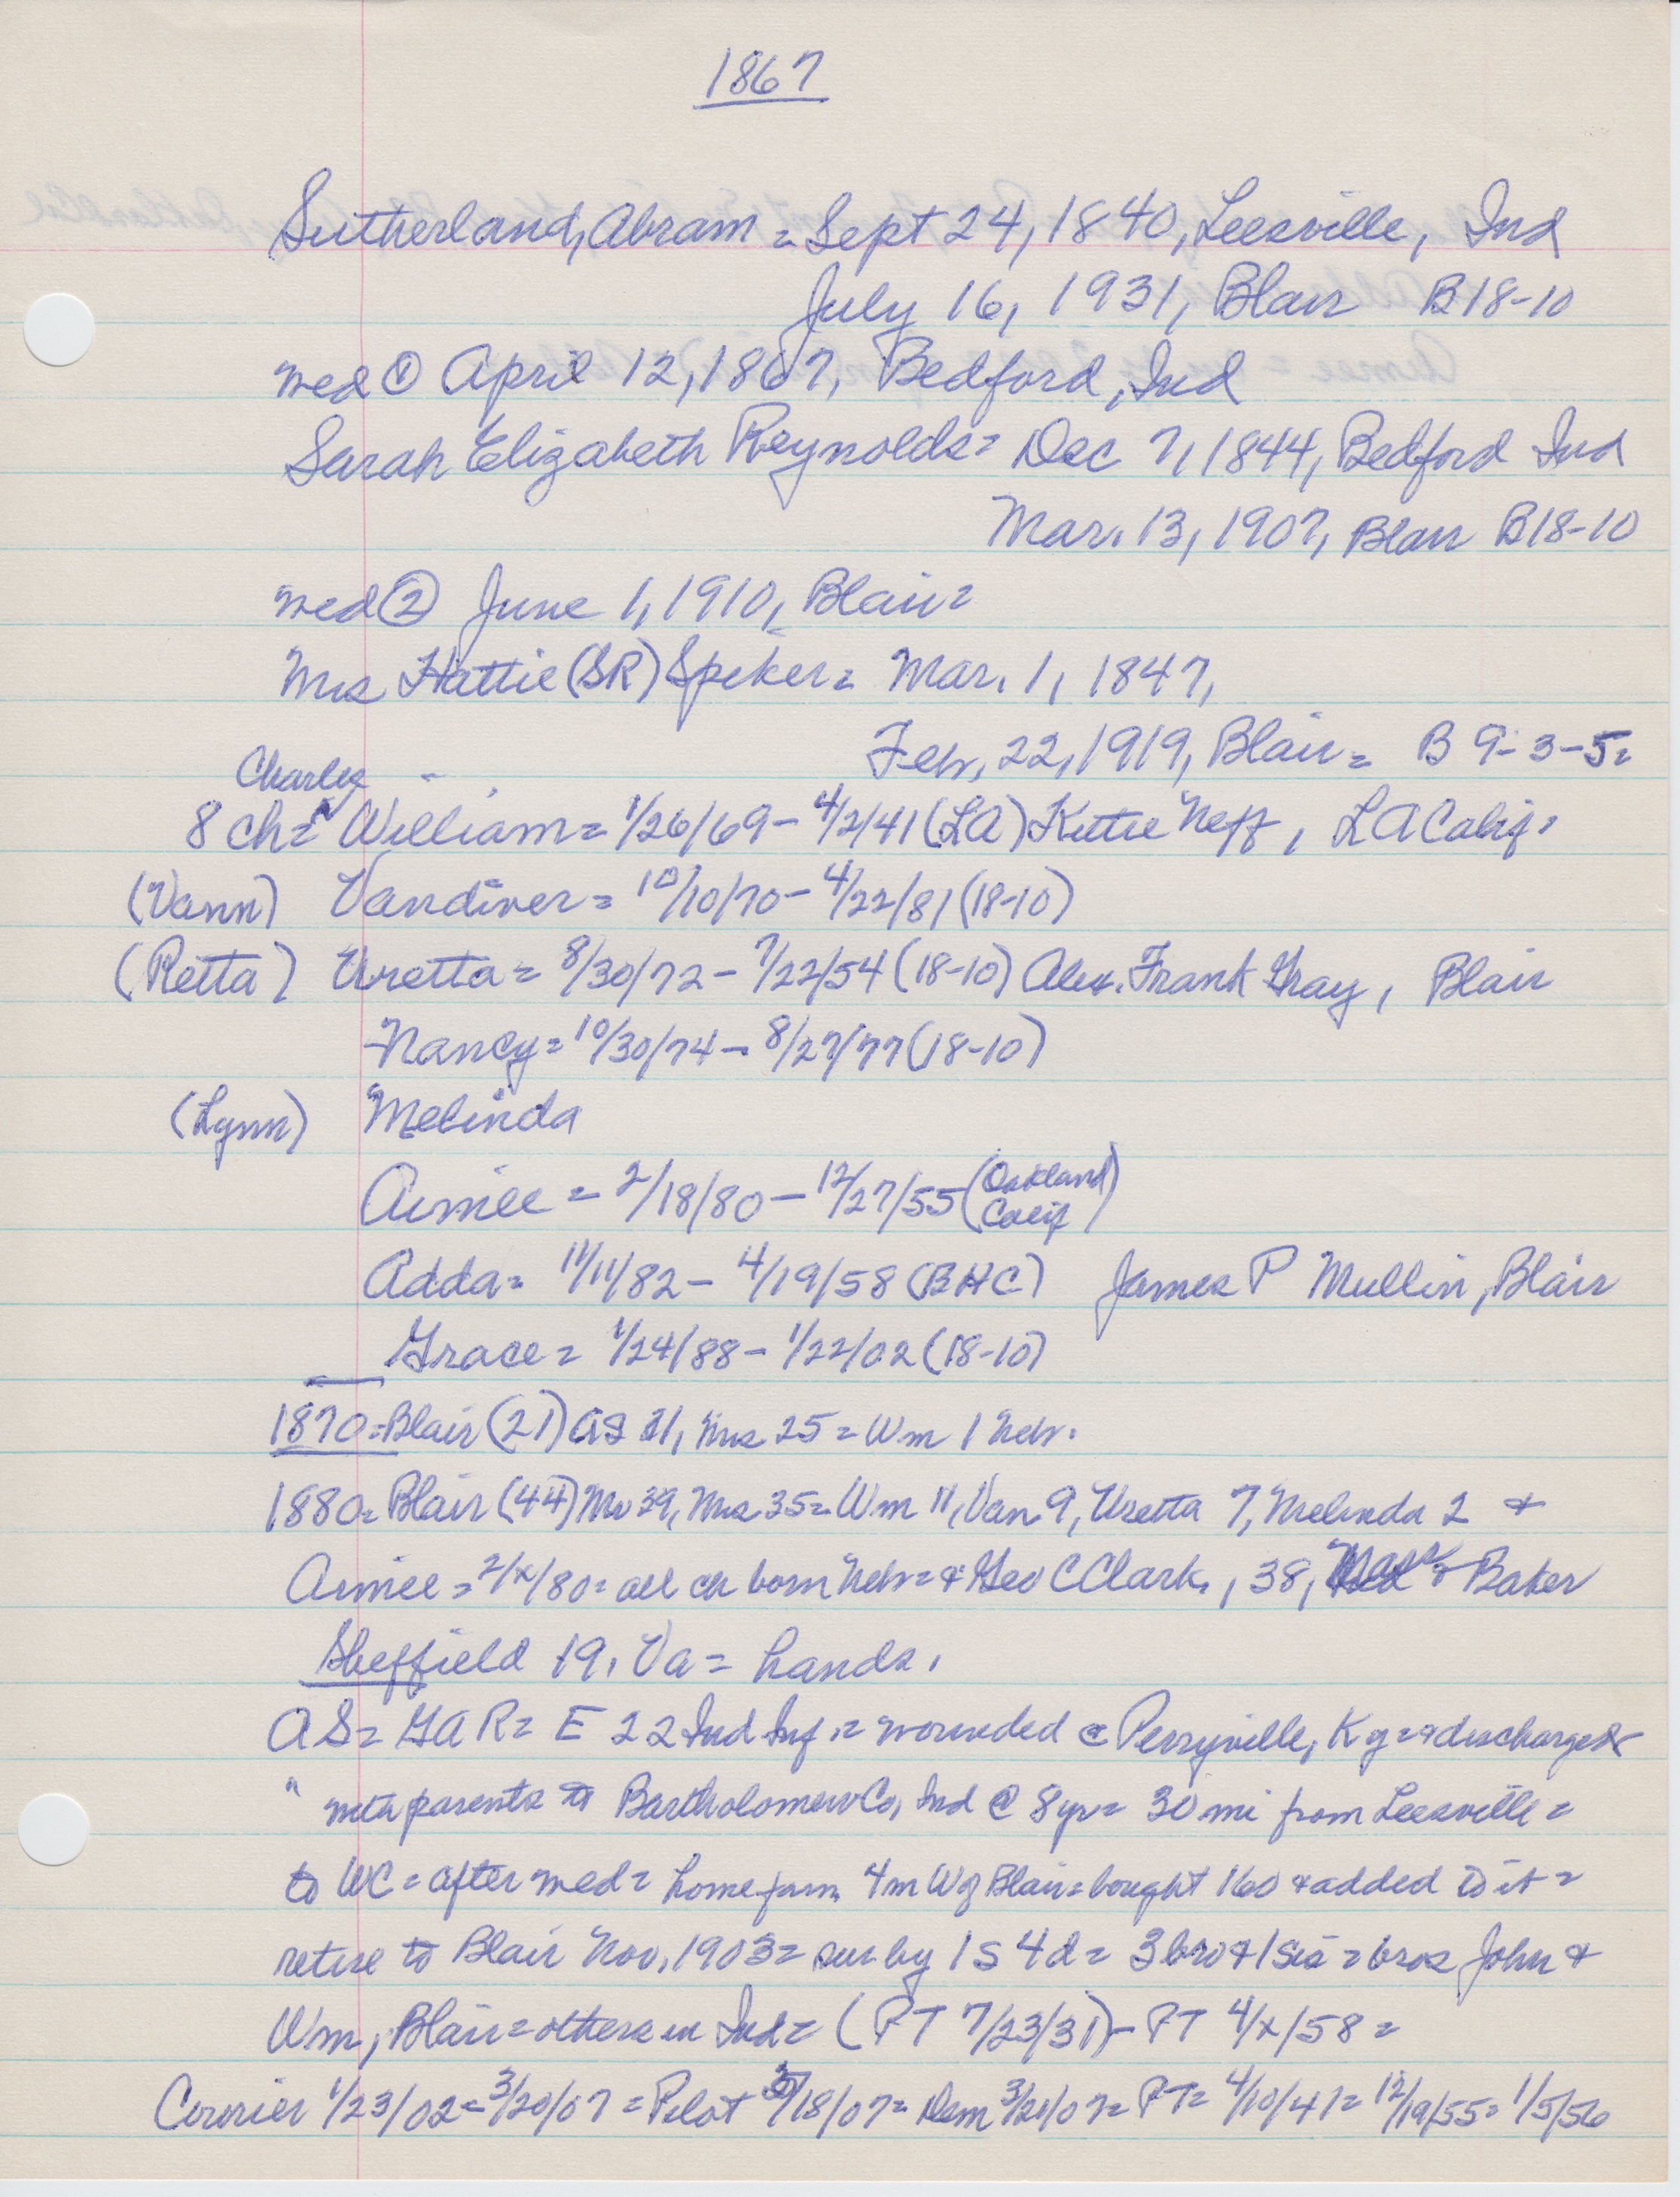 1867
Sutherland, Abram = Sept 24, 1840, Leesville, Ind
July 16, 1931, Blair B18-10
med ① April 12, 1867, Bedford, Ind
Sarah Elizabeth Reynolds = Dec 7, 1844, Bedford Ind
Mar. 13, 1907, Blair B18-10
med ② June 1, 1910, Blair =
Mrs Hattie (SR) Spiker = Mar. 1, 1847,
Feb. 22, 1919, Blair = B 9-3-5 =
Charles
8 ch = ^ William = 1/26/69 - 4/2/41 (LA) Kittie Neff, LA Calif.
(Vann) Vandiver = 10/10/70 - 4/22/81 (18-10)
(Retta) Uretta = 8/30/72 - 7/22/54 (18-10) Alex. Frank Gray, Blair
Nancy = 10/30/74 - 8/27/77 (18-10)
(Lynn) Melinda
Aimee = 2/18/80 - 12/27/55 (Oakland Calif)
Adda = 11/11/82 - 4/19/58 (BHC) James P Mullin, Blair
Grace = 1/24/88 - 1/22/02 (18-10)
1870 = Blair (21) AS 31, Mrs 25 = Wm 1 Neb.
1880 = Blair (44) Mr 39, Mrs 35 = Wm 11, Van 9, Uretta 7, Melinda 2 &
Aimee = 2/x/80 = all ch born Neb = & Geo C Clark, 38, & Baker
Sheffield 19, Va = hands.
AS = GAR = E 22 Ind Inf. = wounded @ Perryville, Ky = & discharged
" with parents to Bartholomew Co, Ind @ 8 yr = 30 mi from Leesville =
to WC = after med = home farm 4m W of Blair = bought 160 & added to it =
retire to Blair Nov. 1903 = sur by 1 S 4 d = 3 bro & 1 sis = bros John &
Wm, Blair = others in Ind = (PT 7/23/31) - PT 4/x/58 =
Courier 1/23/02 = 3/20/07 = Pilot 3/18/07 = Dem 3/21/07 = PT = 4/10/41 = 12/19/55 = 1/5/56